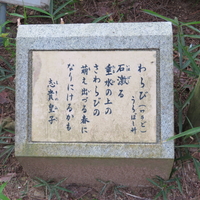 わらび（わらび）
うらぼし科
石激る
垂水の上の
さわらびの
萌え出づる春に
なりにけるかも
志貴皇子